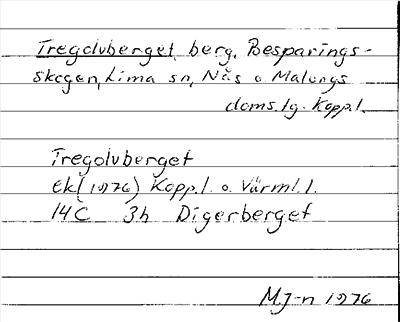 Tregolvberget, berg, Besparings-
skogen, Lima sn, Nås o. Malungs
doms.lg. Kopp.l.
Tregolvberget
Ek (1976) Kopp.l. o. Värml.l.
14C 3h Digerberget
M.J-n 1976